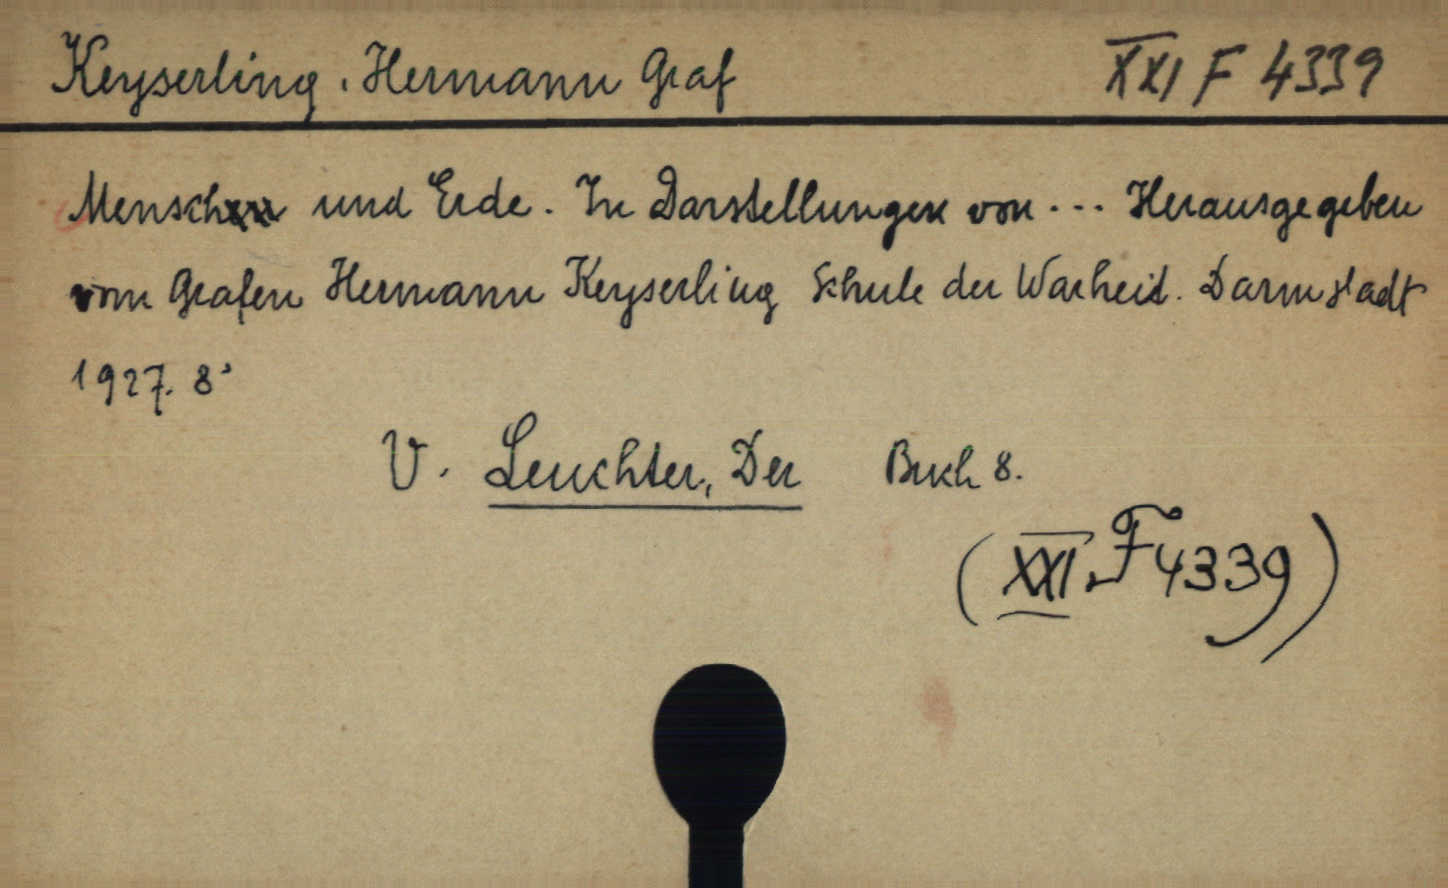 Keyserling, Hermann Graf XXI F 4339
Mensch und Erde. In Darstellungen von ... Herausgegeben
vom Grafen Hermann Keyserling Schule der Warheit. Darmstadt
1927. 8°
V. Leuchter, Der Buch 8.
(XXI. F 4339)